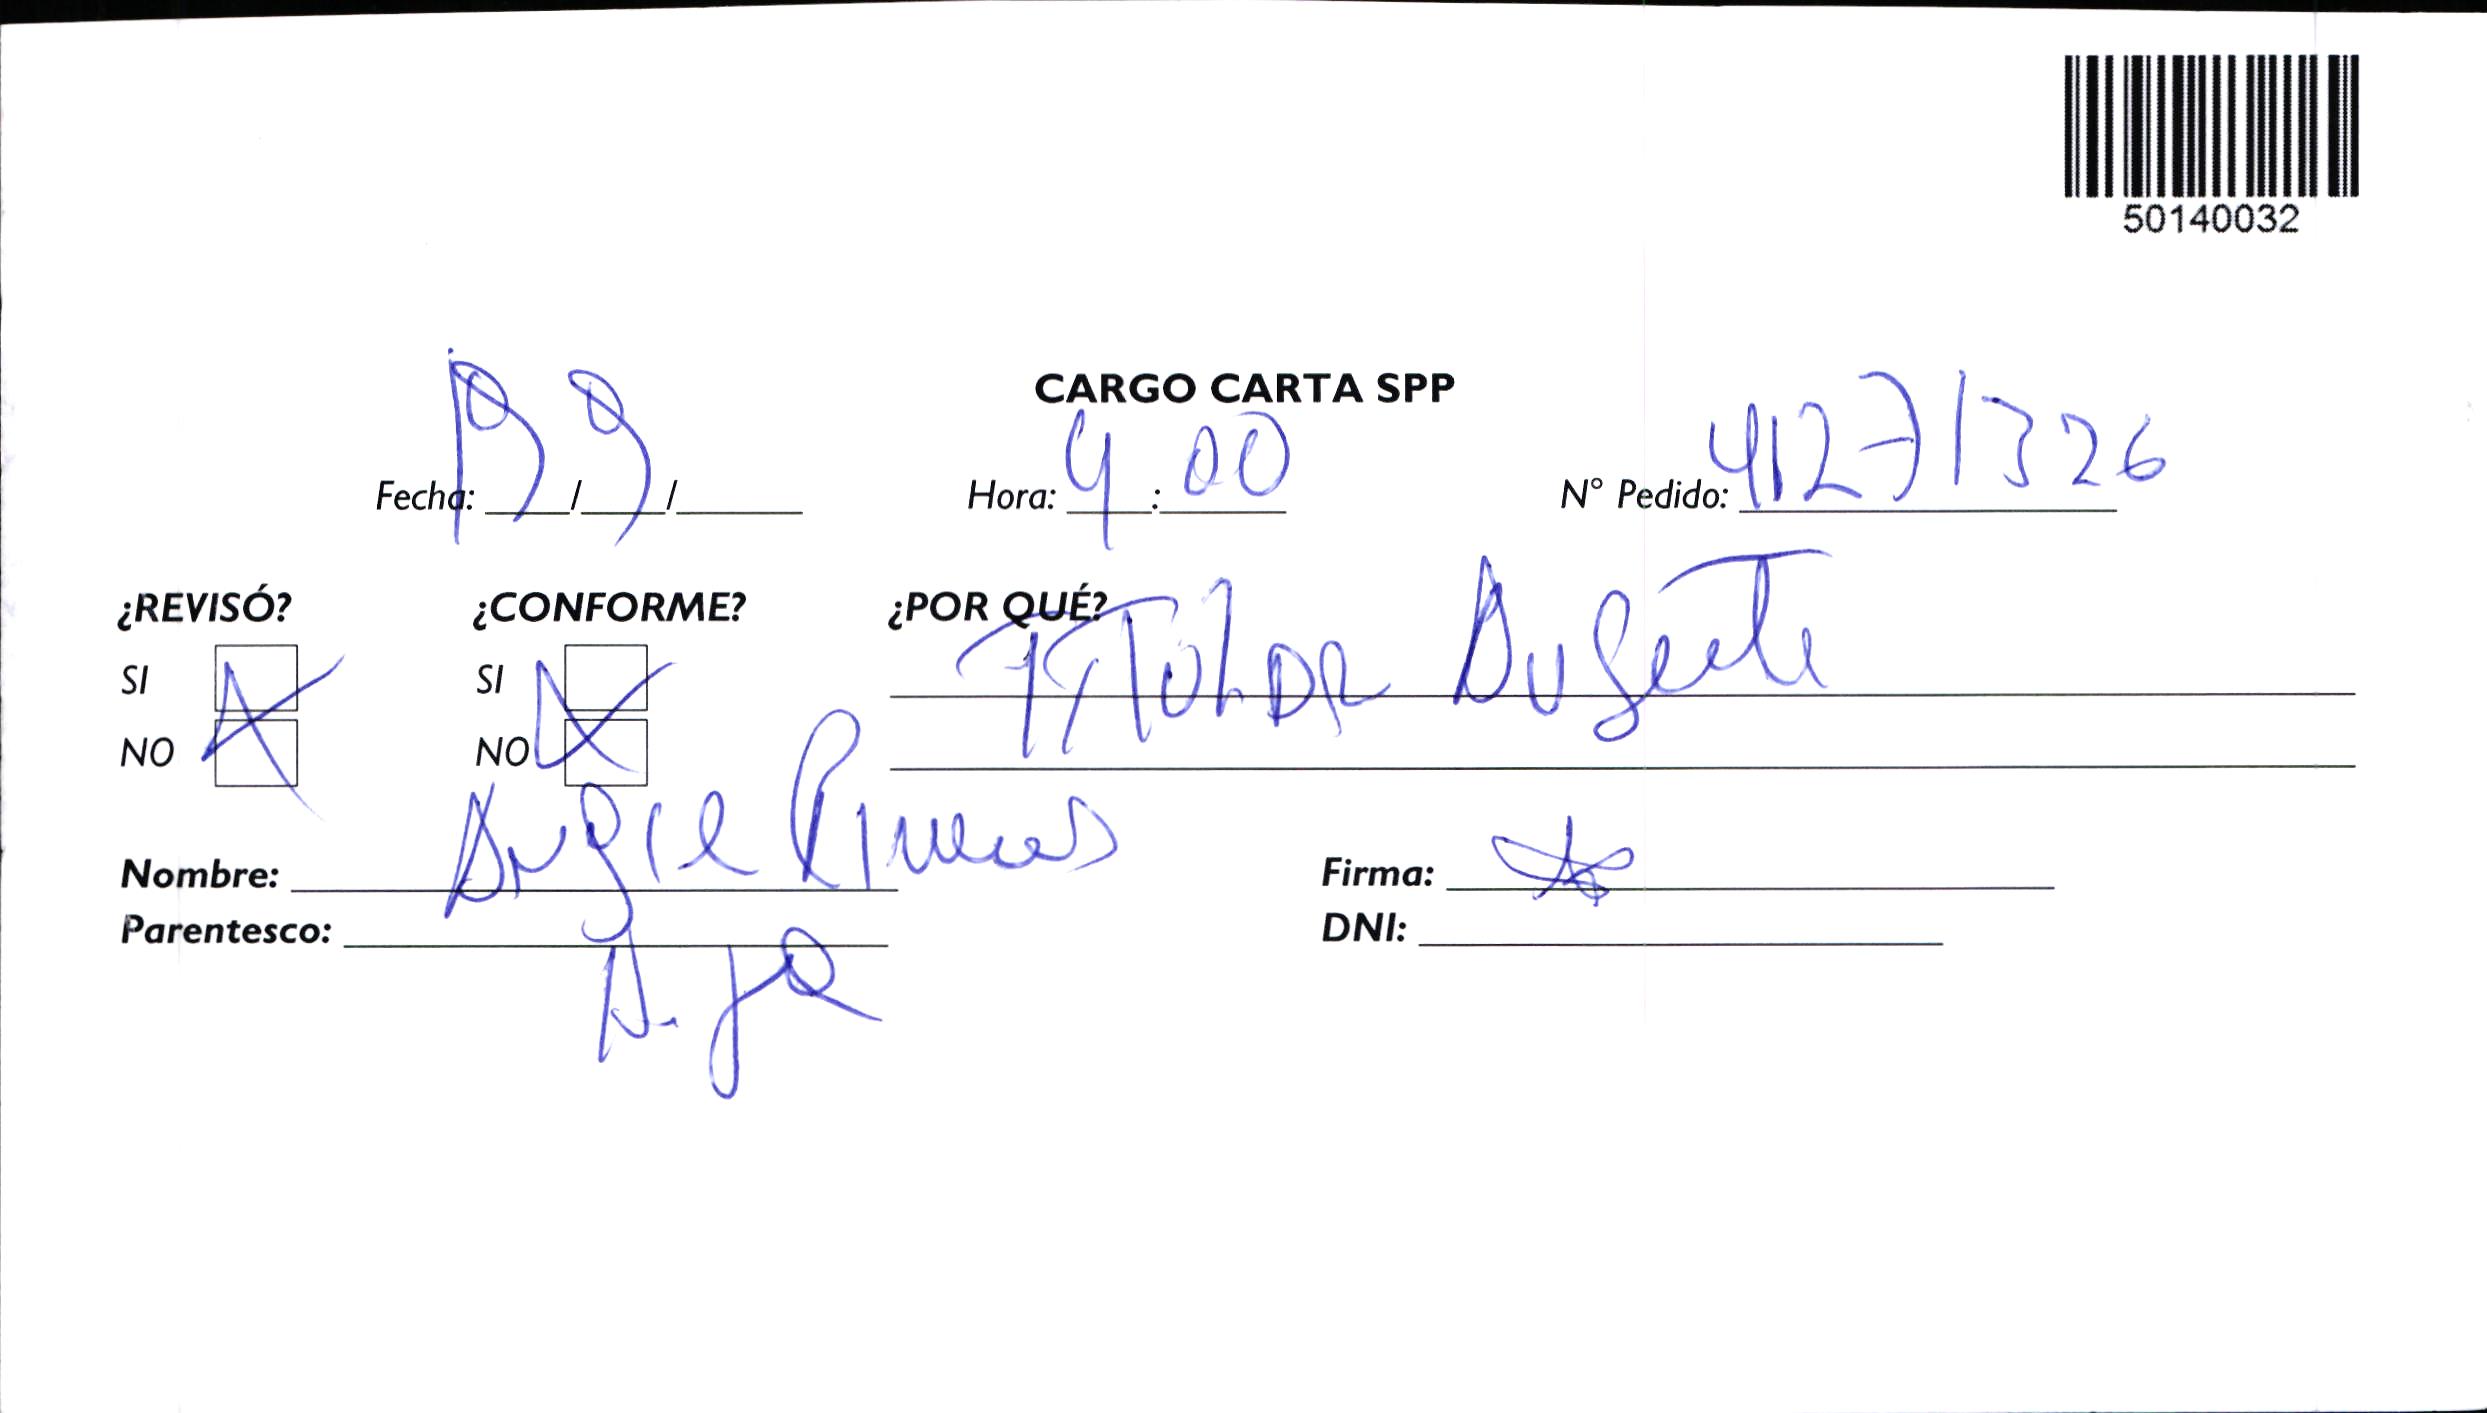 50140032
CARGO CARTA SPP
Fecha: 19/9/ Hora: 9:00 N° Pedido: 41271326
¿REVISÓ? ¿CONFORME? ¿POR QUÉ?
SI SI TITULAR AUSENTE
NO NO
Nombre: Angie Firma:
Parentesco: Hija DNI: